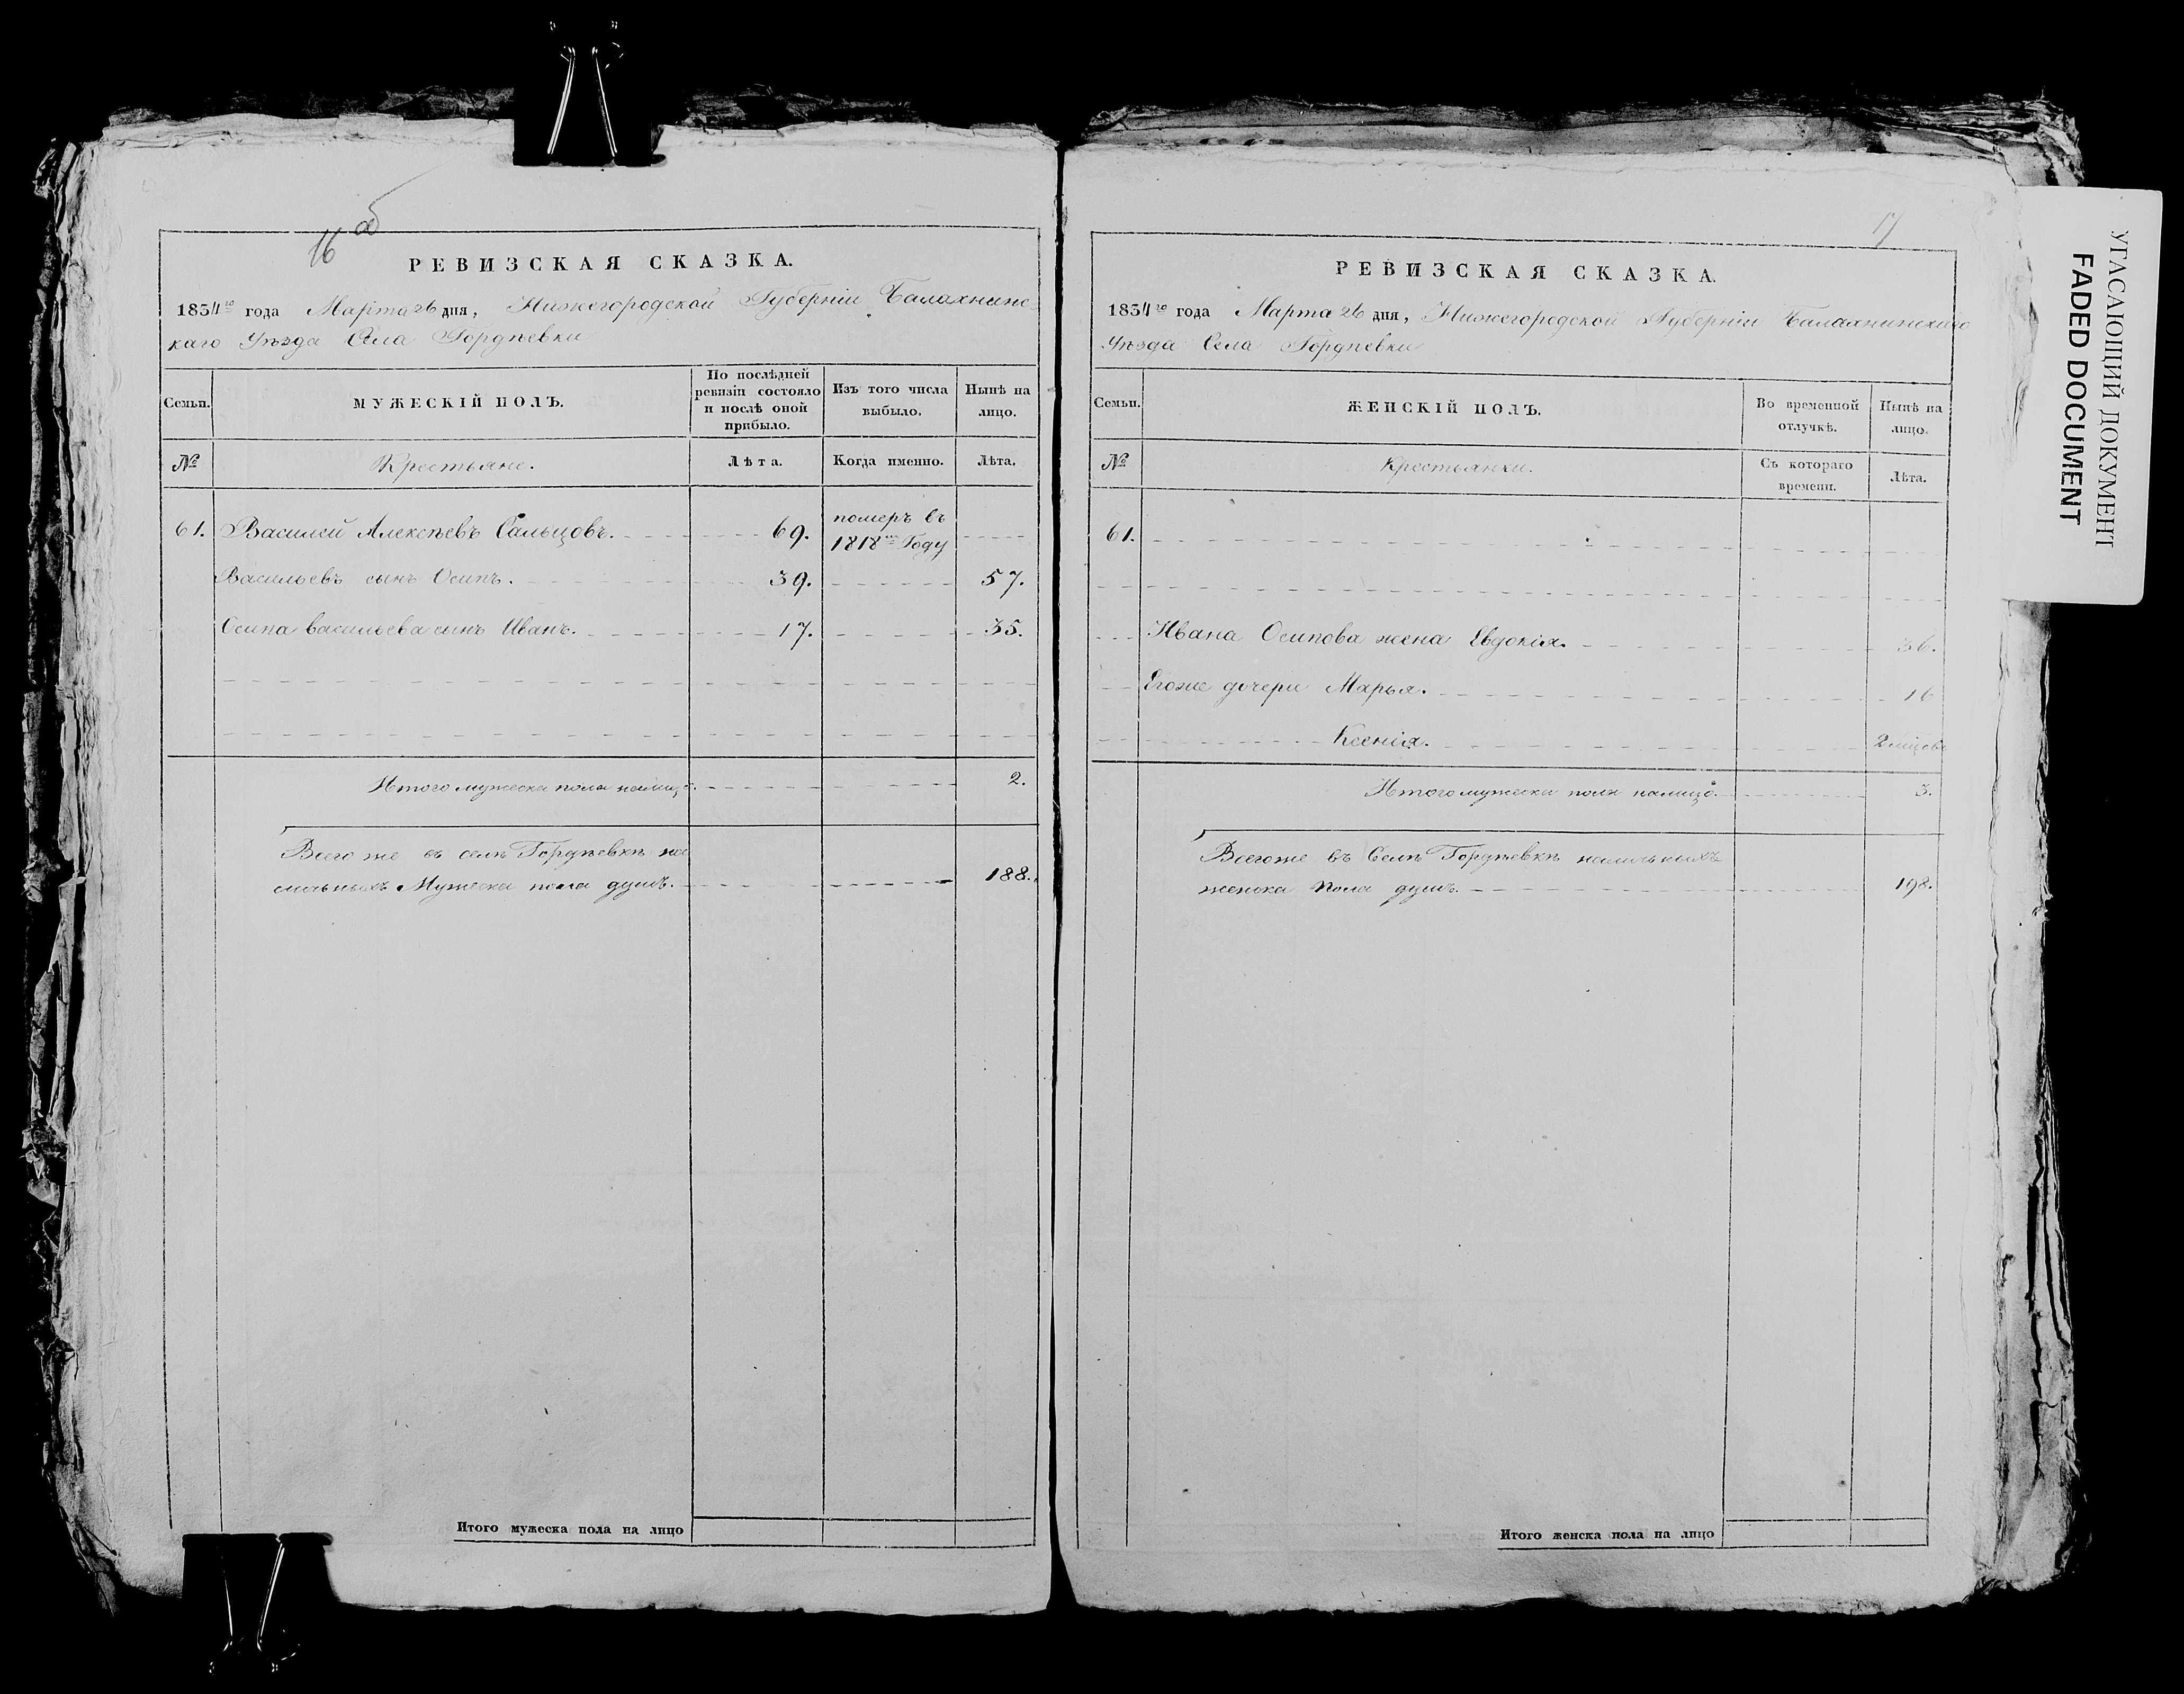 16 об
РЕВИЗСКАЯ СКАЗКА.
1854го года Марта 26 дня, Нижегородской Губерніи Балахнинс-
каго Уѣзда Села Гордѣевки
Семьи.
МУЖЕСКІЙ ПОЛЪ.
По послѣдней
ревизіи состояло
и послѣ оной
прибыло.
Изъ того числа
выбыло.
Нынѣ на
лицо.
№
Крестьяне.
Лѣта.
Когда именно.
Лѣта.
61. Василей Алексѣевъ Сальцовъ. 69. померъ въ
1818мъ Году
Васильевъ сынъ Осипъ. 39. 57.
Осипа васильева сынъ Иванъ. 17. 35.
Итого мужеска пола налицо. 2.
Всего же въ селѣ Гордѣевкѣ на
мужеска пола душъ. 188.
Итого мужеска пола на лицо
17
РЕВИЗСКАЯ СКАЗКА.
1854го года Марта 26 дня, Нижегородской Губерніи Балахнинскаго
Уѣзда Села Гордѣевки
Семьи.
ЖЕНСКІЙ ПОЛЪ.
Во временной
отлучкѣ.
Нынѣ на
лицо.
№
Крестьянки.
Съ котораго
времени.
Лѣта.
61.
Ивана Осипова жена Евдокія. 36.
Егоже дочери Марья. 16
Ксенія. 2
Итого мужеска пола налицо. 3.
Всегоже въ Селѣ Гордѣевкѣ
женска пола душъ. 198.
Итого женска пола на лицо
УГАСАЮЩИЙ ДОКУМЕНТ
FADED DOCUMENT